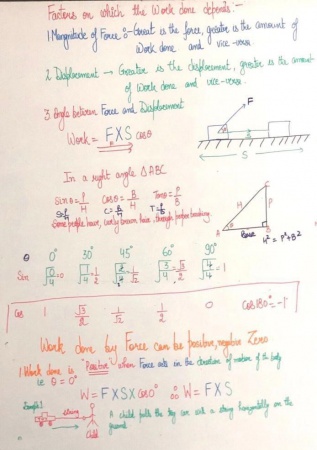 Factors on which the Work done depends:-
1. Mangnitude of Force :- Great is the force, greater is the amount of
Work done and vice-versa.
2. Displacement → Greater is the displacement, greater is the amount
of work done and vice-versa.
3. Angle between Force and Displacement
Work = F X S cosθ
F
θ
S
In a right angle ΔABC
Sinθ = P/H Cosθ = B/H Tanθ = P/B
C = B/H T = P/B
Some people have, curly brown hair, through proper brushing.
A
B
C
H
P
Base
H² = P² + B²
θ 0° 30° 45° 60° 90°
Sin √0/4 = 0 √1/4 = 1/2 √2/4 = 1/√2 √3/4 = √3/2 √4/4 = 1
Cos 1 √3/2 1/√2 1/2 0 Cos180° = -1
Work done by Force can be positive, negative Zero
1. Work done is "Positive" when Force acts in the direction of motion of the body
i.e. θ = 0°
W = F X S X Cos0° ∴ W = F X S
Example 1
string
Child
A child pulls the toy car with a string horizontally on the
ground.